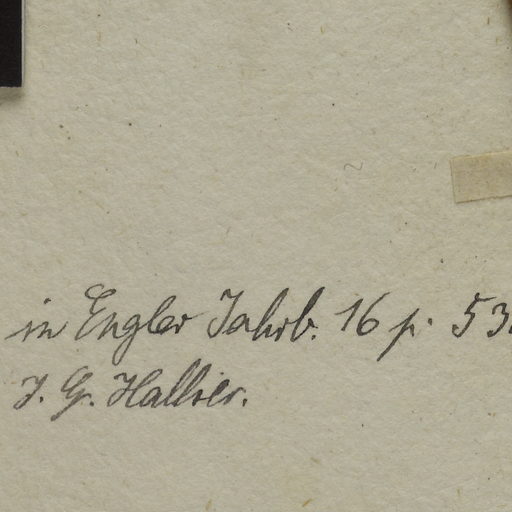 in Engler Jahrb. 16 p. 53
J. G. Hallier.